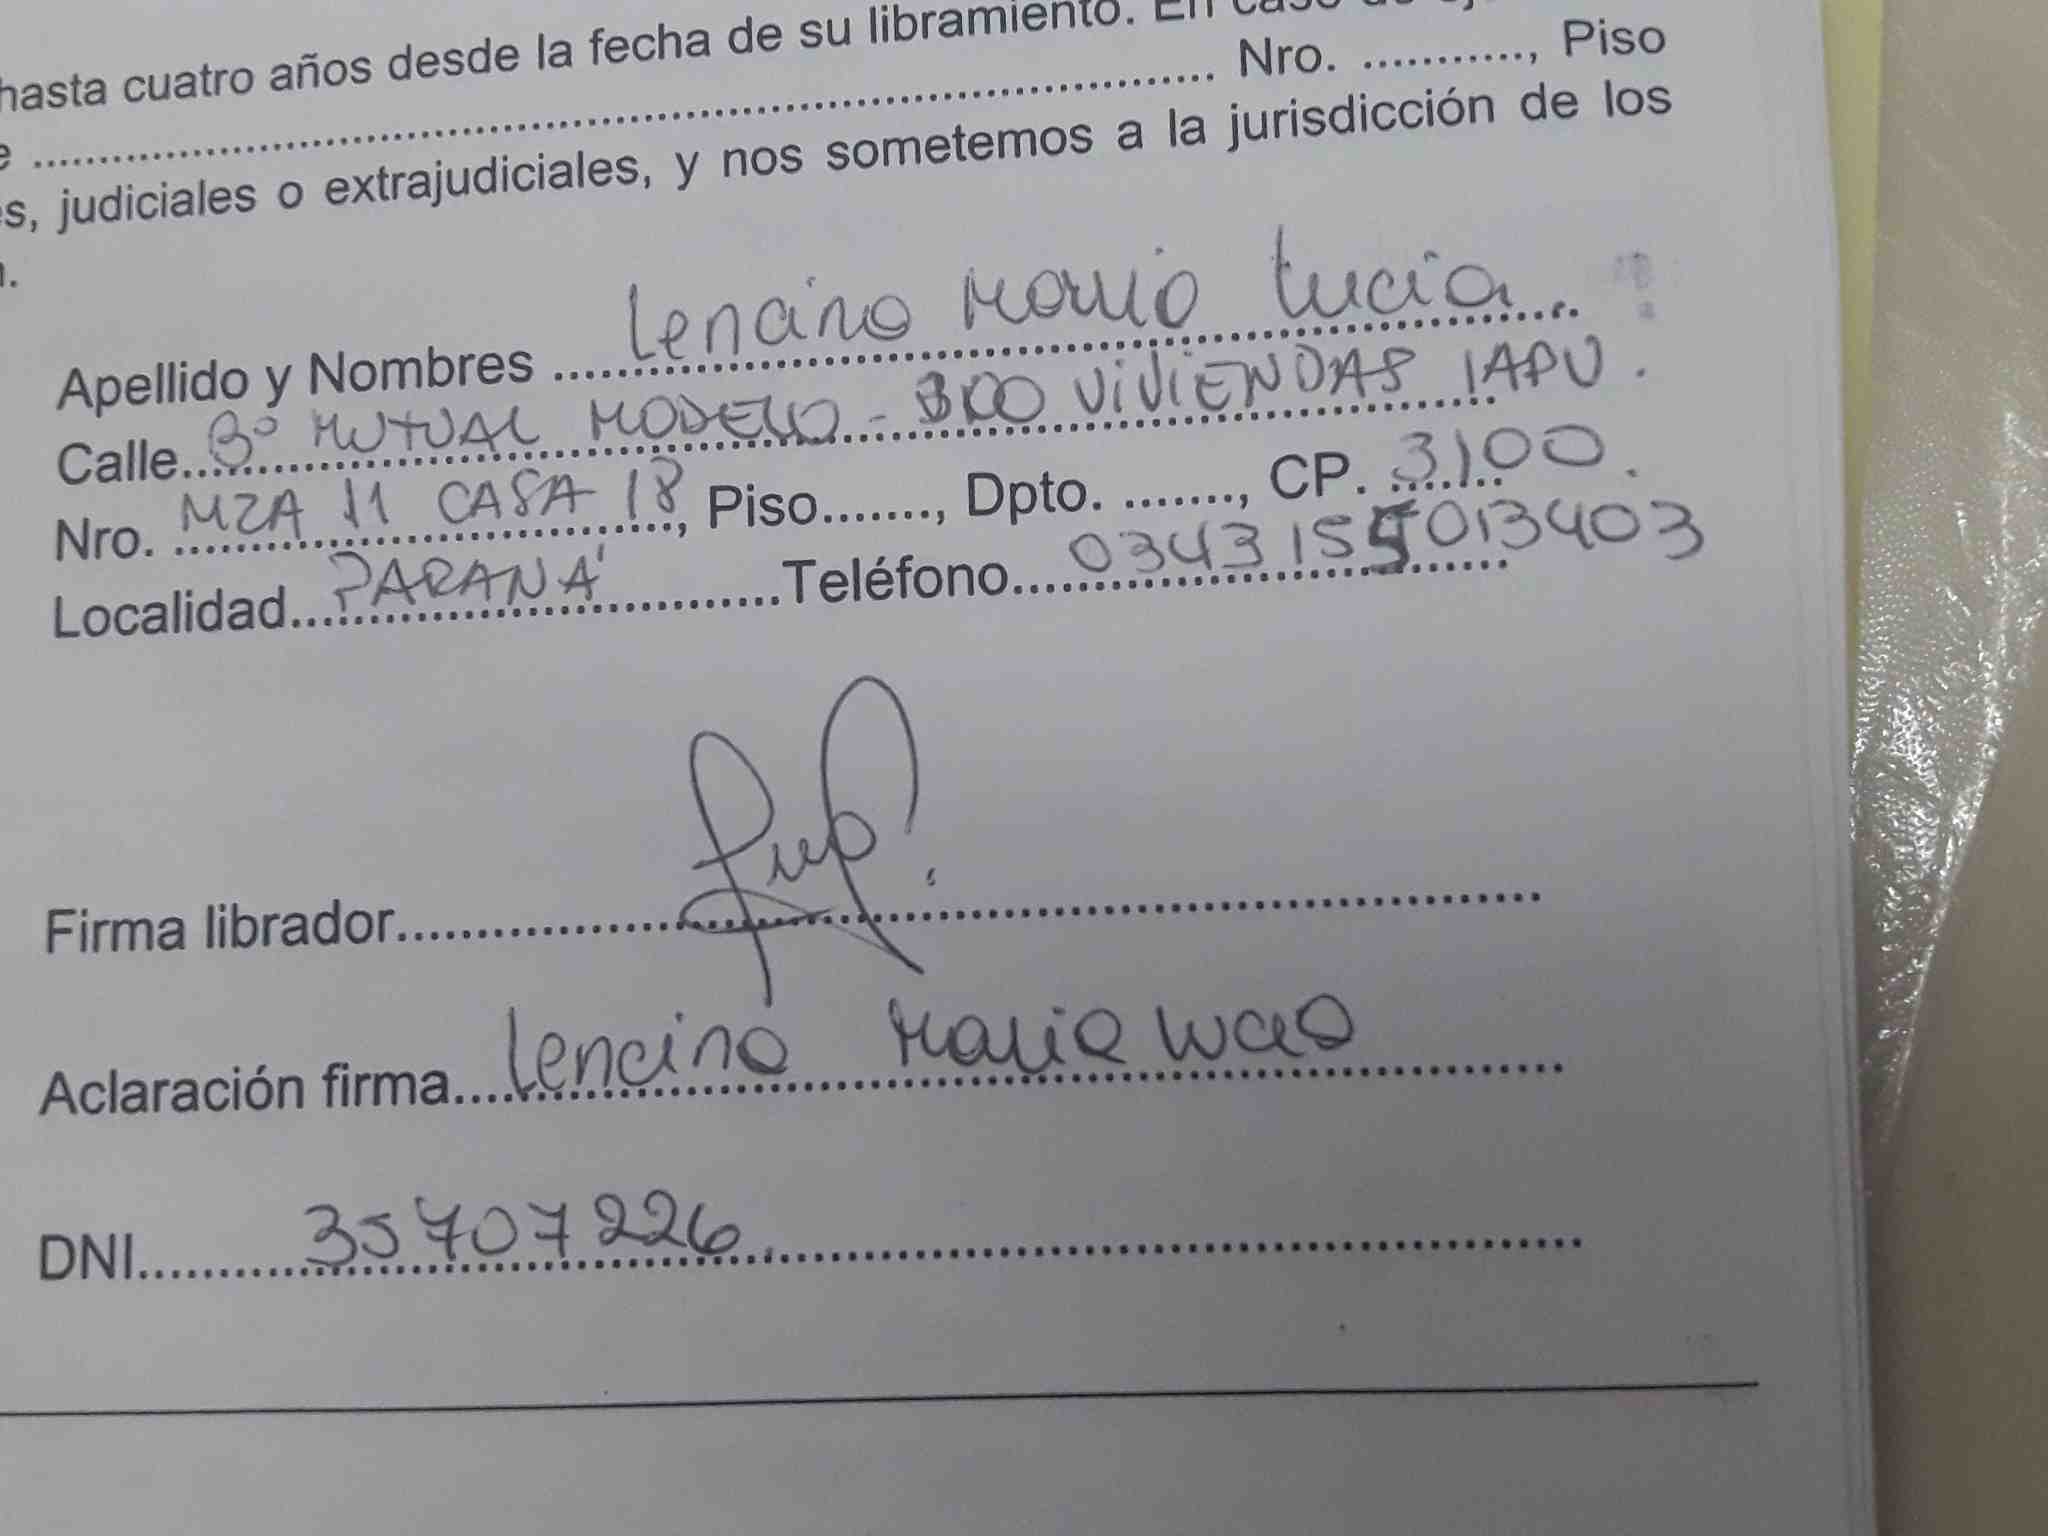 hasta cuatro años desde la fecha de su libramiento. En caso de
e .......... Nro. .........., Piso
es, judiciales o extrajudiciales, y nos sometemos a la jurisdicción de los
n.
Apellido y Nombres Lencina Maria Lucia
Calle Bº MUTUAL MODELO - 300 VIVIENDAS IAPV.
Nro. MZA 11 CASA 18, Piso......., Dpto. ......., CP. 3100.
Localidad PARANÁ Teléfono 0343 155013403
Firma librador
Aclaración firma Lencina Maria Lucia
DNI 35707226